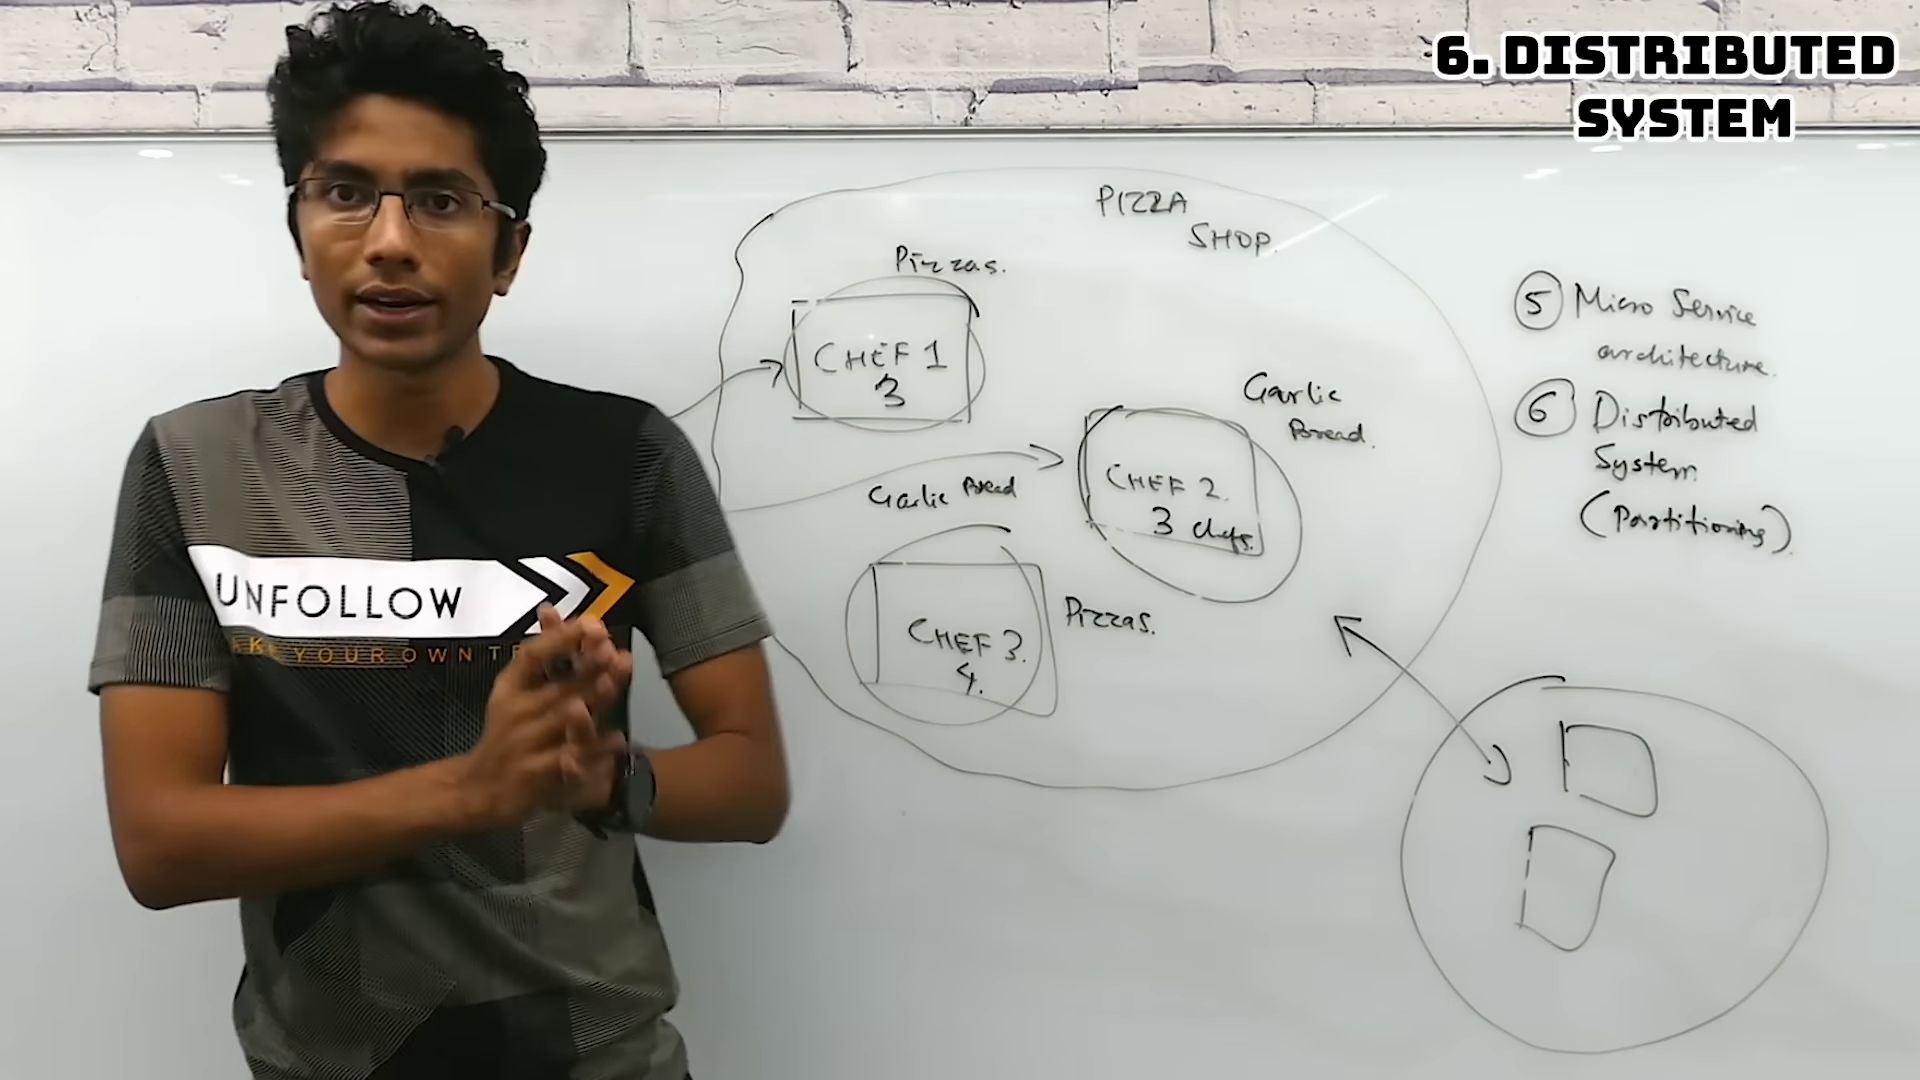 6. DISTRIBUTED
SYSTEM
PIZZA
SHOP.
Pizzas.
CHEF 1
3
Garlic
Bread.
CHEF 2.
3 chefs.
Garlic Bread
CHEF 3.
4.
Pizzas.
5 Micro Service
architecture.
6 Distributed
System
(Partitioning)
UNFOLLOW
YOUR OWN